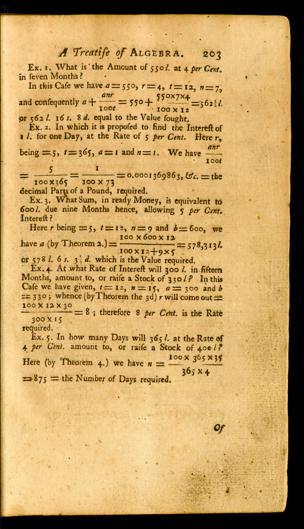 A Treatise of ALGEBRA. 203
Ex. 1. What is the Amount of 550 l. at 4 per Cent.
in seven Months?
In this Case we have a = 550, r = 4, t = 12, n = 7,
and consequently a + anr/100t = 550 + 550×7×4/100×12 = 562⅚ l.
or 562 l. 16 s. 8 d. equal to the Value sought.
Ex. 2. In which it is proposed to find the Interest of
1 l. for one Day, at the Rate of 5 per Cent. Here r,
being = 5, t = 365, a = 1 and n = 1. We have anr/100t
= 5/100×365 = 1/100×73 = 0.0001369863, &c. = the
decimal Parts of a Pound, required.
Ex. 3. What Sum, in ready Money, is equivalent to
600 l. due nine Months hence, allowing 5 per Cent.
Interest?
Here r being = 5, t = 12, n = 9 and b = 600, we
have a (by Theorem 2.) = 100×600×12/100×12+9×5 = 578,313 l.
or 578 l. 6 s. 3 d. which is the Value required.
Ex. 4. At what Rate of Interest will 300 l. in fifteen
Months, amount to, or raise a Stock of 330 l? In this
Case we have given, t = 12, n = 15, a = 300 and b
= 330; whence (by Theorem the 3d) r will come out =
100×12×30/300×15 = 8; therefore 8 per Cent. is the Rate
required.
Ex. 5. In how many Days will 365 l. at the Rate of
4 per Cent. amount to, or raise a Stock of 400 l?
Here (by Theorem 4.) we have n = 100×365×35/365×4
= 875 = the Number of Days required.
Of